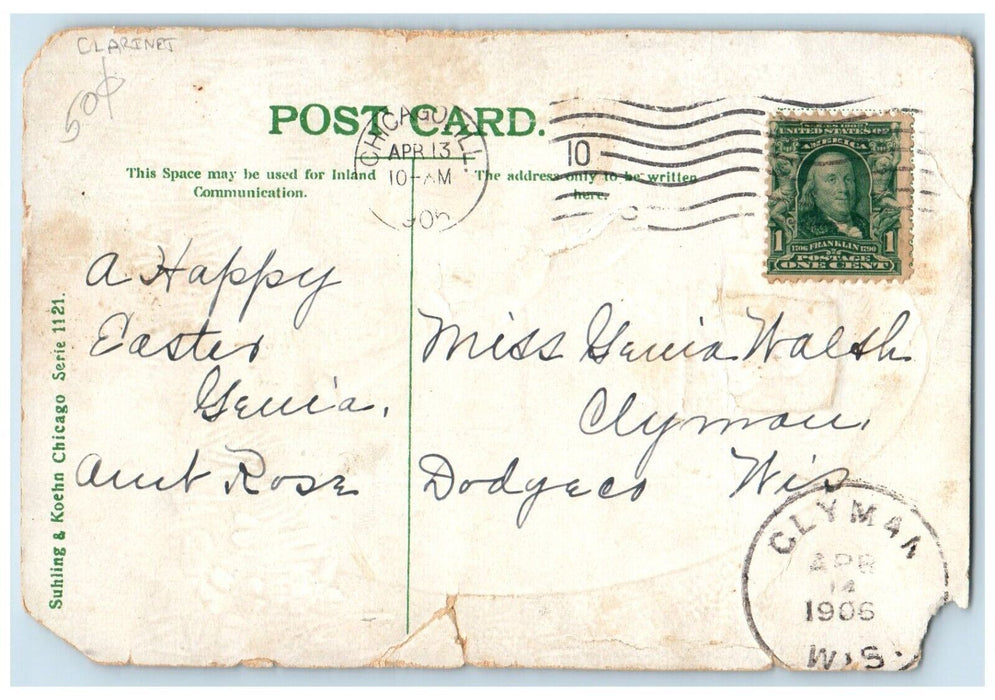 CLARINET
50¢
POST CARD.
CHICAGO, ILL.
APR 13
10-AM
1906
10
This Space may be used for Inland Communication.
The address only to be written here.
SERIES 1902
UNITED STATES OF
AMERICA
1 1
1706 FRANKLIN 1790
POSTAGE
ONE CENT
A Happy
Easter
Genia.
Aunt Rose
Miss Genia Walsh
Clyman,
Dodge co Wis
CLYMAN
APR
14
1906
WIS.
Suhling & Koehn Chicago Serie 1121.